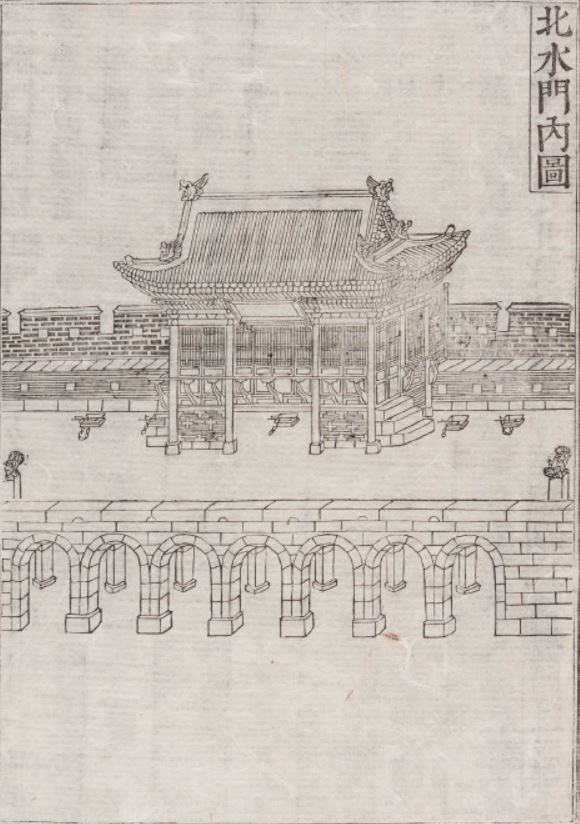 北水門內圖